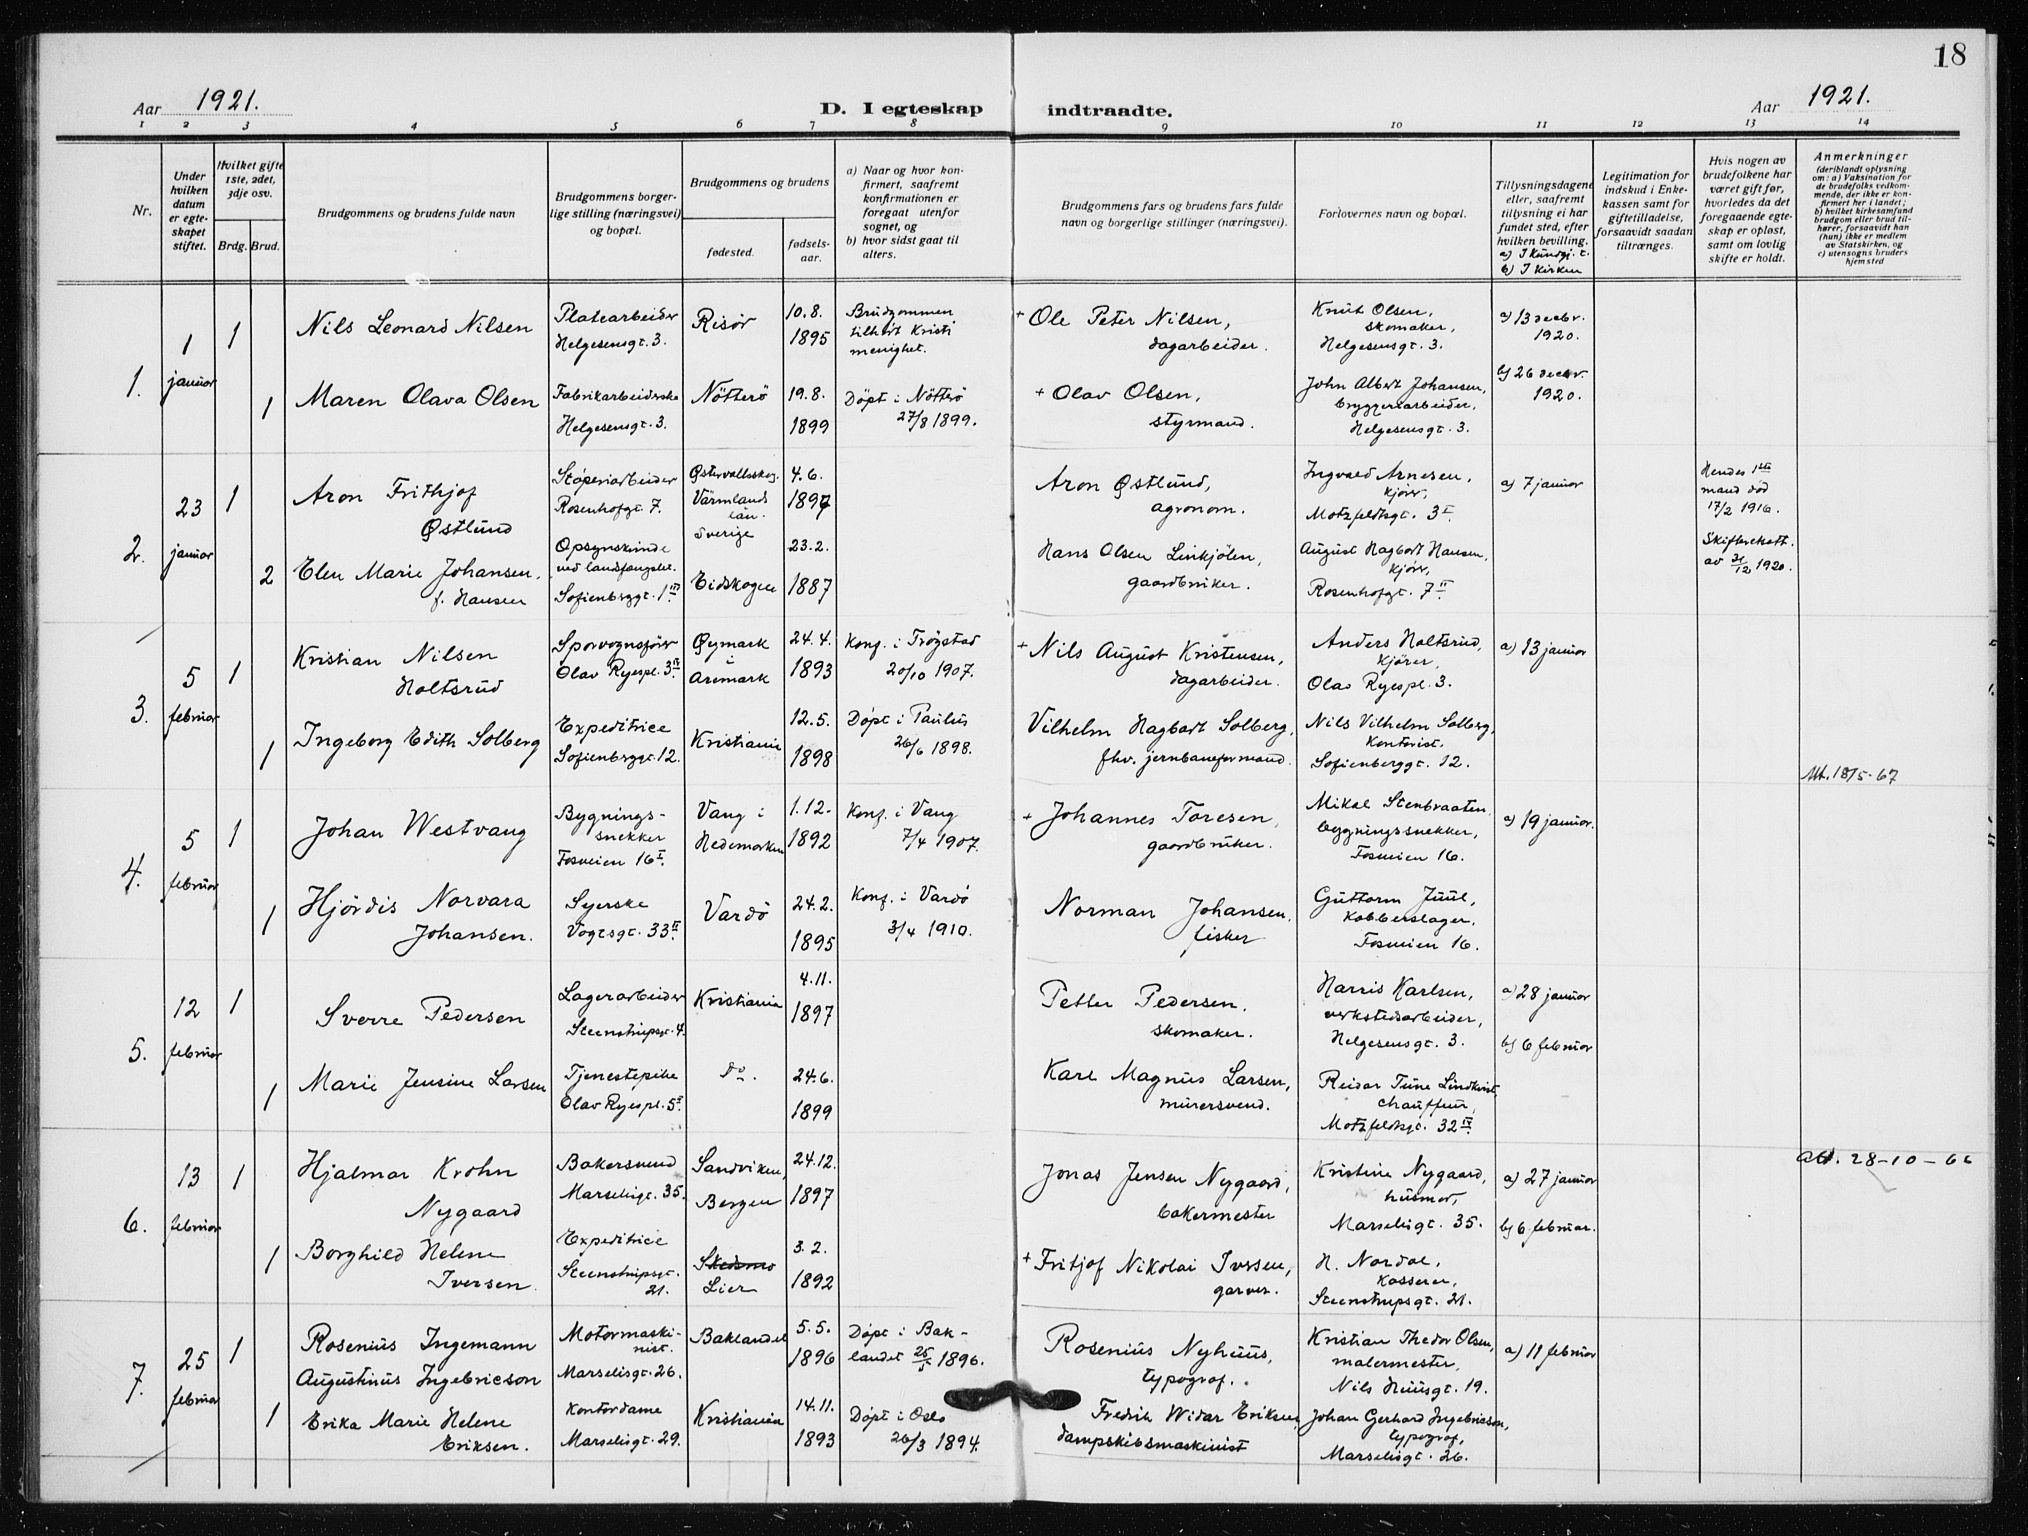 18
Aar 1921.
D. I egteskap indtraadte.
Aar 1921.
1 2 3 4 5 6 7 8 9 10 11 12 13 14
Nr.
Under
hvilken
datum
er egte-
skapet
stiftet.
Hvilket gifte
1ste, 2det,
3dje osv.
Brdg. Brud.
Brudgommens og brudens fulde navn
Brudgommens borger-
lige stilling (næringsvei)
og bopæl.
Brudgommens og brudens
fødested.
fødsels-
aar.
a) Naar og hvor kon-
firmert, saafremt
konfirmationen er
foregaat utenfor
sognet, og
b) hvor sidst gaat til
alters.
Brudgommens fars og brudens fars fulde
navn og borgerlige stillinger (næringsvei).
Forlovernes navn og bopæl.
Tillysningsdagene
eller, saafremt
tillysning ei har
fundet sted, efter
hvilken bevilling.
a) I Kundgj. t.
b) I Kirken
Legitimation for
indskud i Enke-
kassen samt for
giftetilladelse,
forsaavidt saadan
tiltrænges.
Hvis nogen av
brudefolkene har
været gift før,
hvorledes da det
foregaaende egte-
skap er opløst,
samt om lovlig
skifte er holdt.
Anmerkninger
(deriblandt oplysning
om: a) Vaksination for
de brudefolks vedkom-
mende, der ikke er kon-
firmert her i landet;
b) hvilket kirkesamfund
brudgom eller brud til-
hører, forsaavidt han
(hun) ikke er medlem
av Statskirken, og
c) utensogns bruders
hjemsted
1.
1
januar
1
Nils Leonard Nilsen
Platearbeider
Helgesensgt. 3.
Risør
10.8.
1895
Brudgommen
tilhørt Kristi
menighet.
+ Ole Peter Nilsen,
dagarbeider.
Knut Olsen,
skomaker,
Helgesensgt. 3.
a) 13 decbr.
1920.
1
Maren Olava Olsen
Fabrikarbeiderske
Helgesensgt. 3.
Nötterö
19.8.
1899
Döpt i Nötterö
27/8 1899.
+ Olav Olsen,
styrmand.
John Albert Johansen,
bryggeriarbeider,
Helgesensgt. 3.
b) 26 decbr.
1920.
2.
23
januar
1
Aron Frithjof
Østlund
Støperiarbeider
Rosenhofgt. 7.
Østervallskog.
Värmlands
län.
Sverige
4.6.
1897
Aron Østlund,
agronom.
Ingvald Arnesen,
kjörer,
Motzfeldtsgt. 3 I.
a) 7 januar
Hendes 1ste
mand död
17/2 1916.
Skifteretsatt.
av 31/12 1920.
2
Elen Marie Johansen,
f. Hansen
Opsynskvinde
ved landsfængslet.
Sofienbrggt. 1 IV.
Eidskogen
23.2.
1887
Hans Olsen Linkjölen,
gaardbruker.
August Hagbart Hansen,
kjörer,
Rosenhofgt. 7 II.
3.
5
februar
1
Kristian Nilsen
Holtsrud
Sporvognsförer
Olav Ryespl. 3 IV.
Øymark
i
Aremark
24.4.
1893
Konf. i Trøgstad
20/10 1907.
+ Nils August Kristensen,
dagarbeider.
Anders Holtsrud,
kjörer,
Olav Ryespl. 3.
a) 13 januar
1
Ingeborg Edith Solberg
Expeditrice
Sofienbrggt. 12.
Kristiania
12.5.
1898
Döpt i Paulus
26/6 1898.
Vilhelm Hagbart Solberg,
fhv. jernbaneformand.
Nils Vilhelm Solberg,
kontorist.
Sofienberggt. 12.
Utt. 18/5-67
4.
5
februar
1
Johan Westvang
Bygnings-
snekker
Fosveien 16 I.
Vang i
Hedemarken
1.12.
1892
Konf. i Vang
7/4 1907.
+ Johannes Toresen,
gaardbruker.
Mikal Stenbraaten,
bygningssnekker,
Fosveien 16.
a) 19 januar.
1
Hjördis Norvara
Johansen.
Syerske
Vogtsgt. 33 II.
Vardö
24.2.
1895
Konf. i Vardö
3/4 1910.
Norman Johansen,
fisker
Guttorm Juul,
kobberslager,
Fosveien 16.
5.
12
februar
1
Sverre Pedersen
Lagerarbeider
Steenstrupsgt. 4.
Kristiania
4.11.
1897
Petter Pedersen,
skomaker.
Harris Karlsen,
verkstedsarbeider,
Helgesensgt. 3.
a) 28 januar
b) 6 februar
1
Marie Jensine Larsen
Tjenestepike
Olav Ryespl. 5 I.
do.
24.6.
1899
Karl Magnus Larsen,
murersvend.
Reidar Tune Lindkvist
chauffeur,
Motzfeldtsgt. 32 IV.
6.
13
februar
1
Hjalmar Krohn
Nygaard
Bakersvend
Marseliisgt. 35.
Sandviken,
Bergen
24.12.
1897
Jonas Jensen Nygaard,
bakermester
Kristine Nygaard,
husmor,
Marseliisgt. 35.
a) 27 januar
b) 6 februar.
att. 28-10-66
1
Borghild Helene
Iversen.
Expeditrice
Steenstrupsgt.
21.
Skedsmo
Lier
3.2.
1892
+ Fritjof Nikolai Iversen,
garver.
H. Nordal,
kasserer,
Steenstrupsgt. 21.
7.
25
februar
1
Rosenius Ingemann
Augustinus Ingebricson
Motormaski-
nist.
Marseliisgt. 26.
Baklandet
5.5.
1896
Döpt i Bak-
landet 25/5 1896.
Rosenius Nyhuus,
typograf.
Kristian Thedor Olsen,
malermester,
Nils Huusgt. 19.
a) 11 februar
1
Erika Marie Helene
Eriksen.
Kontordame
Marseliisgt. 29.
Kristiania
14.11.
1893
Döpt i Oslo
26/3 1894.
Fredrik Widar Eriksen,
dampskibsmaskinist
Johan Gerhard Ingebricson,
typograf,
Marseliisgt. 26.